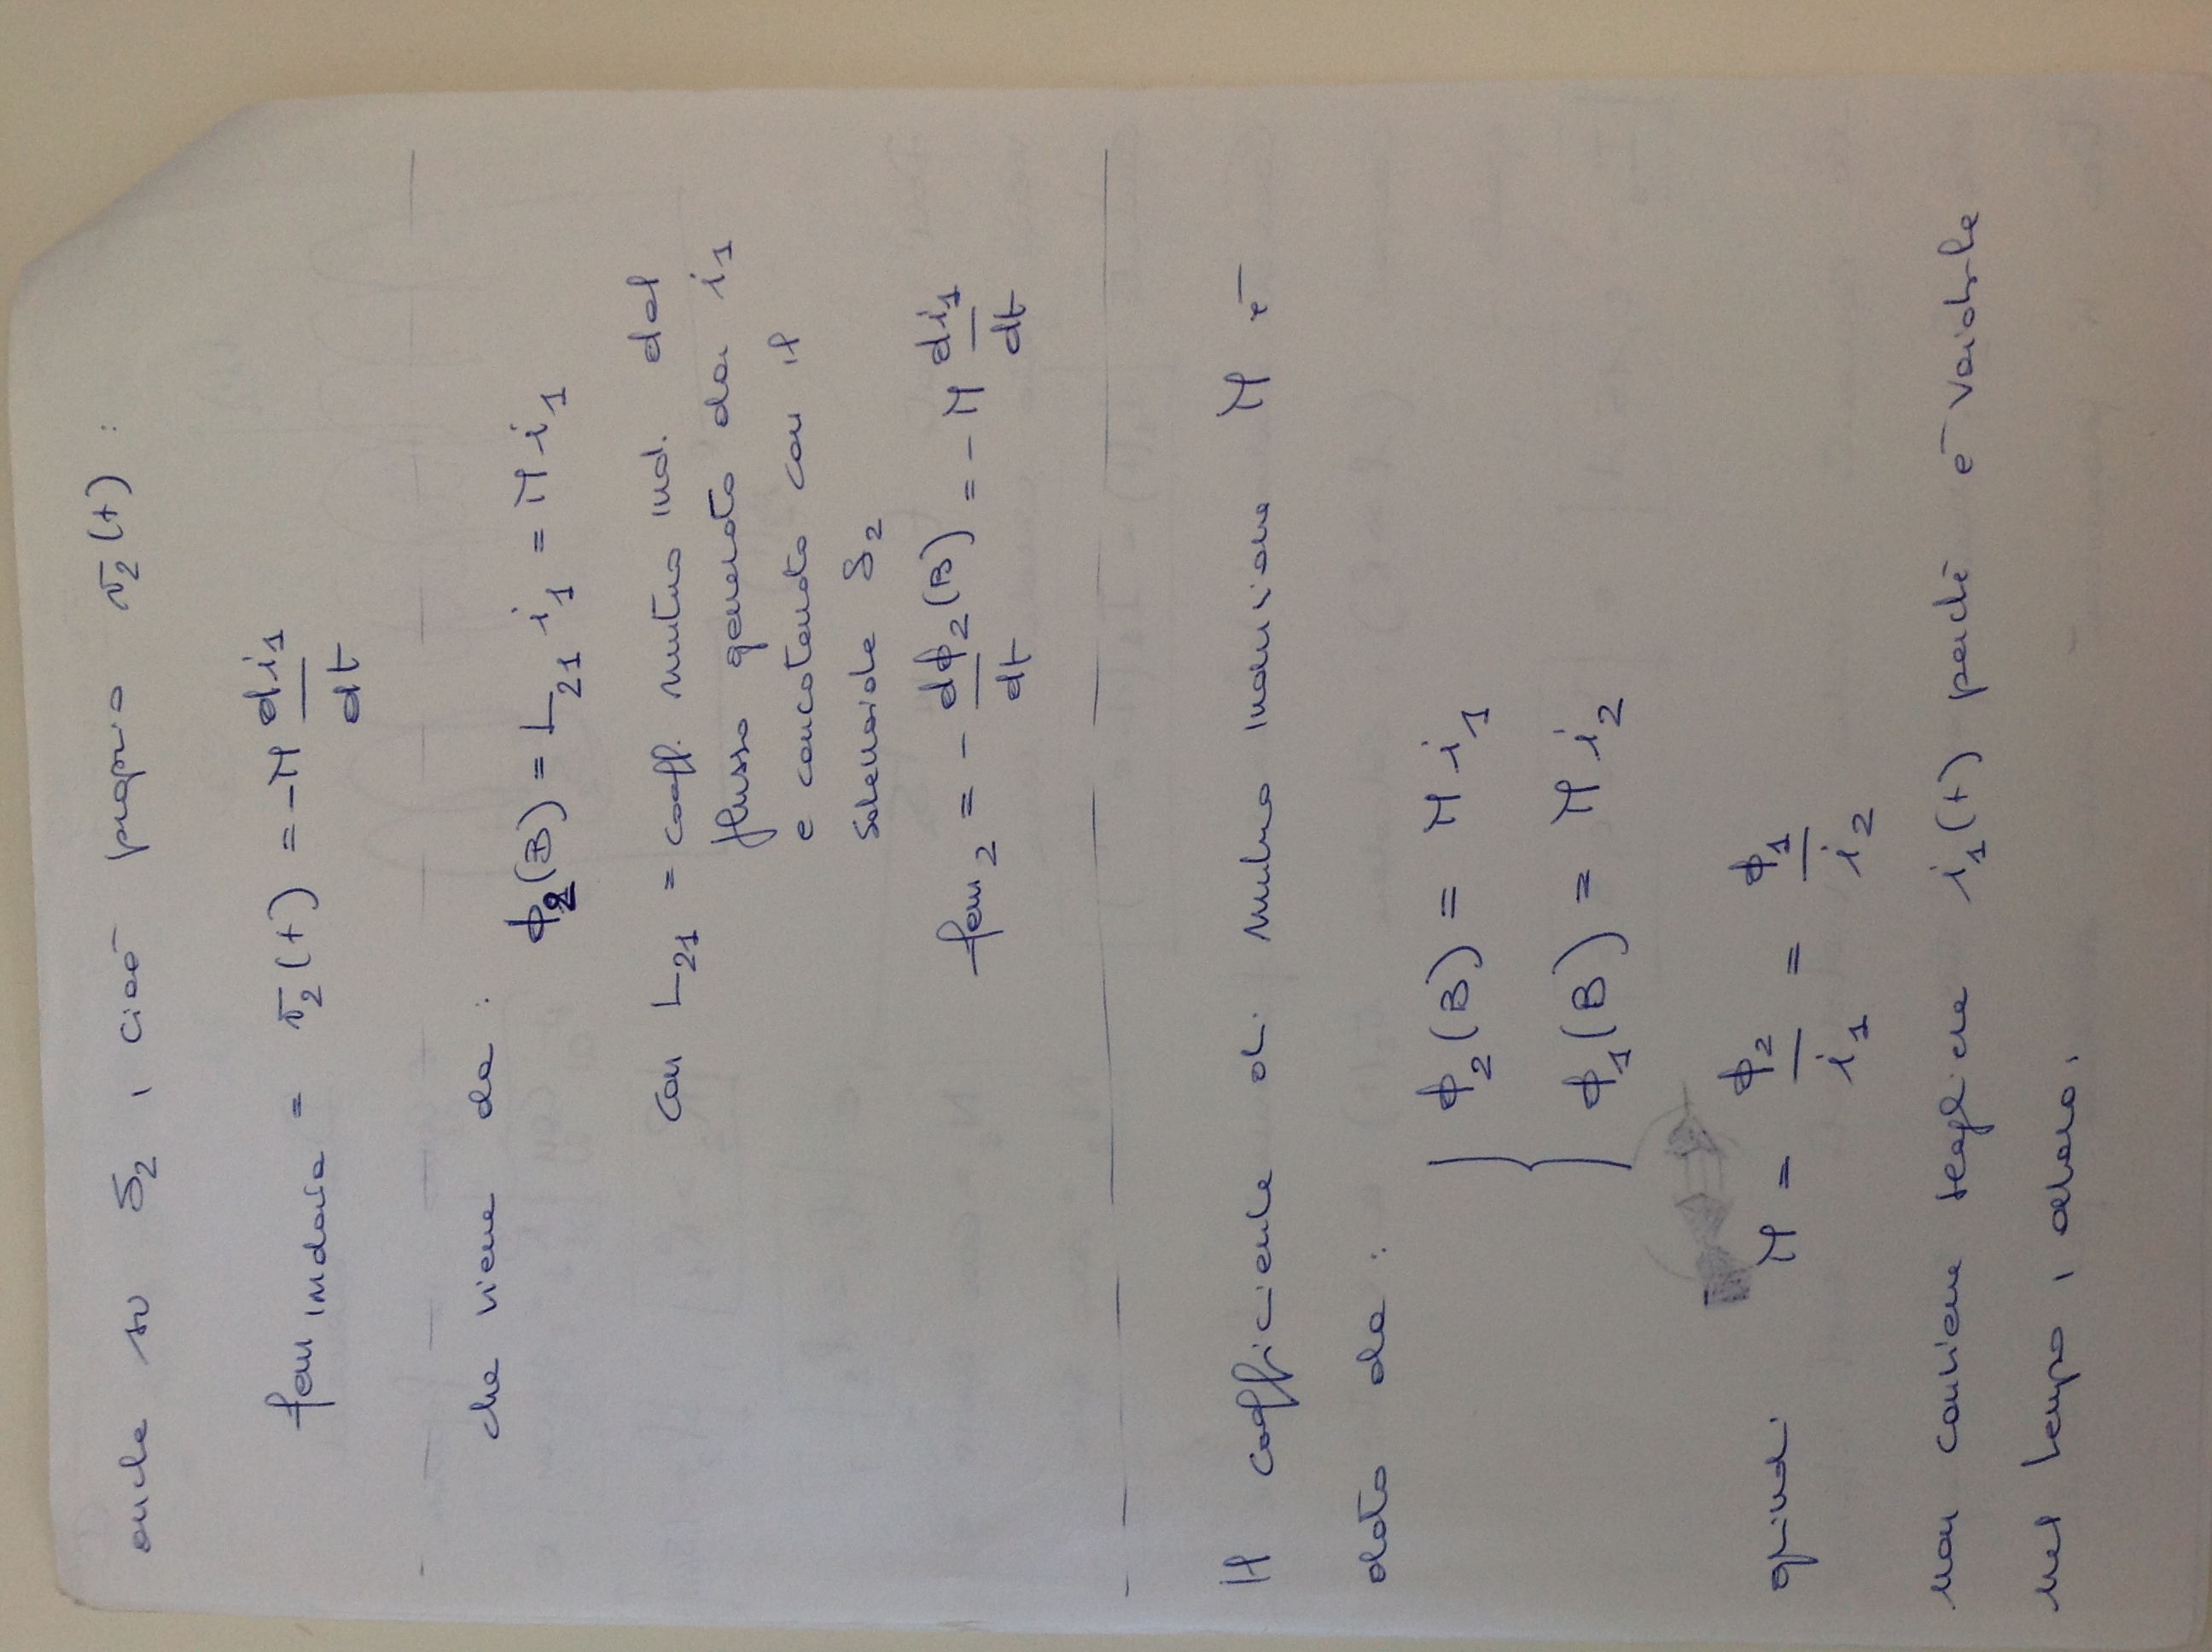 anche su S₂ , cioè proprio v₂(t) :
fem indotta = v₂(t) = -M di₁/dt
che viene da :
ϕ₂(B) = L₂₁ i₁ = M i₁
con L₂₁ = coeff. mutua ind. del
flusso generato da i₁
e concatenato con il
solenoide S₂
fem₂ = - dϕ₂(B)/dt = - M di₁/dt
Il coefficiente di mutua induzione M è
dato da :
{ ϕ₂(B) = M i₁
ϕ₁(B) = M i₂
quindi M = ϕ₂/i₁ = ϕ₁/i₂
non conviene scegliere i₁(t) perché è variabile
nel tempo , allora.